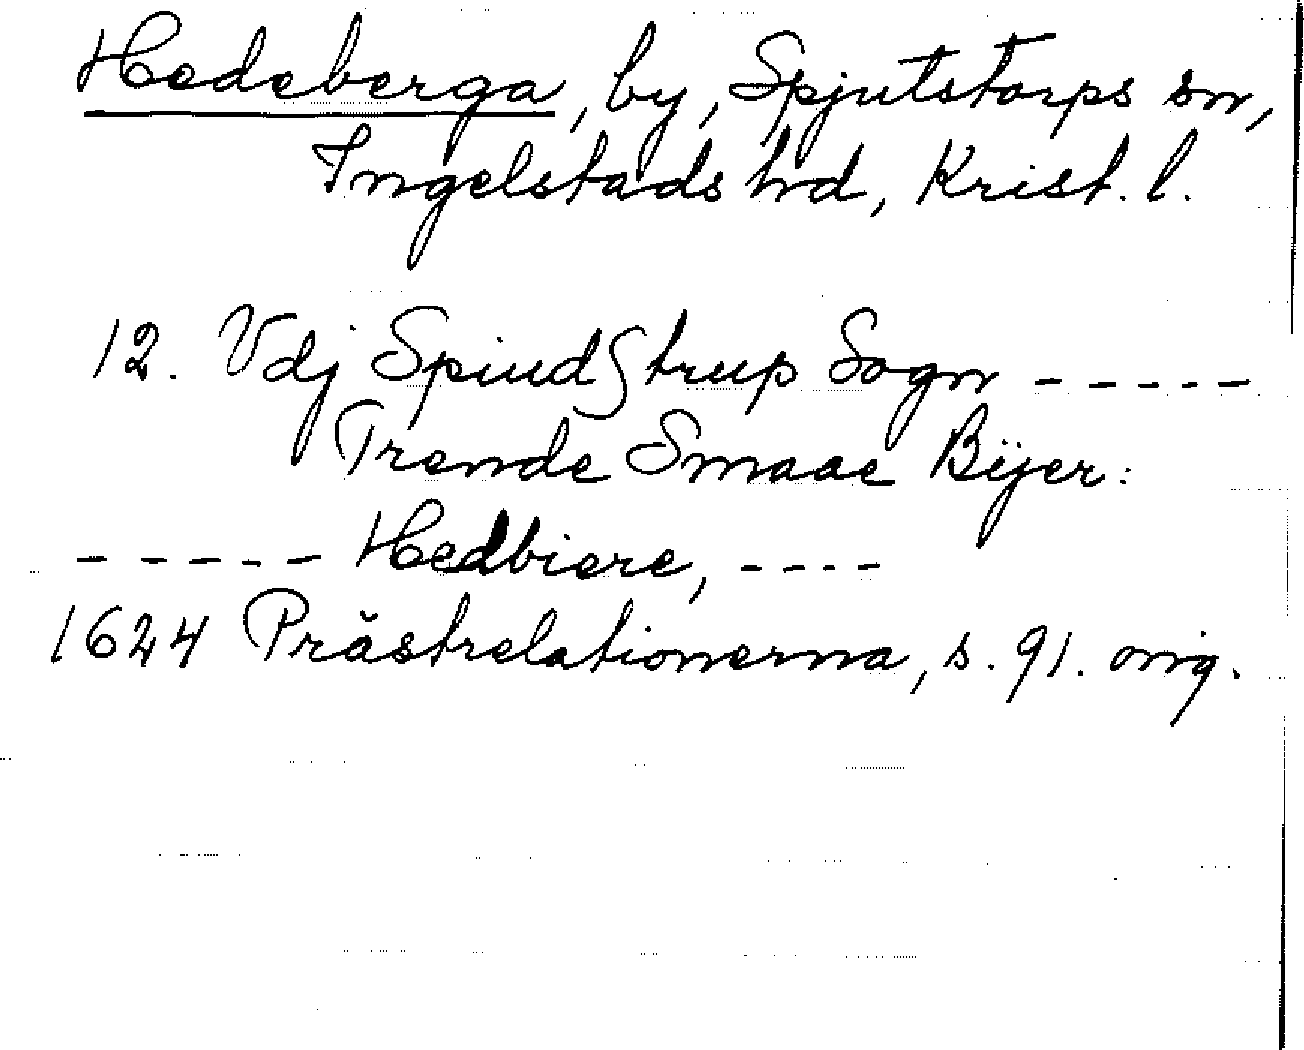 Hedeberga, by, Spjutstorps sn,
Ingelstads hd, Krist. l.
12. Vdj SpiudStrup Sogn - - - - -
Trende Smaae Bÿer:
- - - - - Hedbiere, - - - -
1624 Prästrelationerna, s. 91. orig.